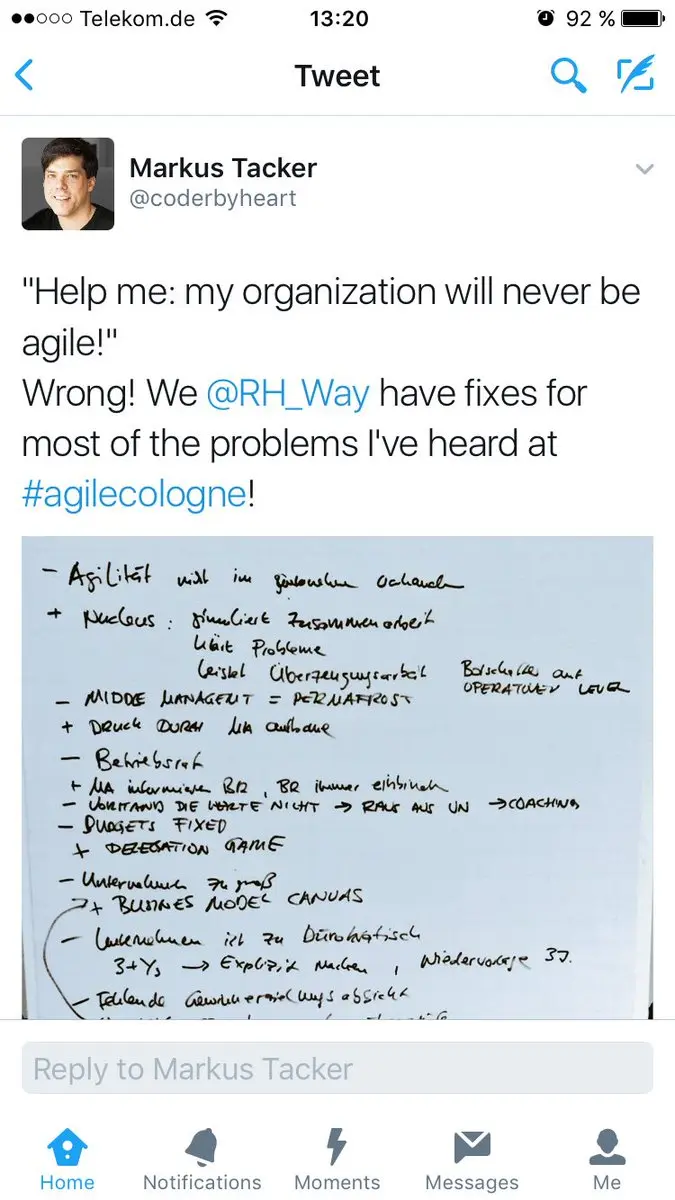 Telekom.de 13:20 92 %
Tweet
Markus Tacker
@coderbyheart
"Help me: my organization will never be
agile!"
Wrong! We @RH_Way have fixes for
most of the problems I've heard at
#agilecologne!
- Agilität nicht im
+ Nucleus : Zusammenarbeit
Probleme
leistet Überzeugungsarbeit Botschafter auf
OPERATIVEN LEVEL
- MIDDLE MANAGENT = PERMAFROST
+ DRUCK DURCH MA aufbauen
- Betriebsrat
+ MA informieren BR , BR immer einbinden
- VORSTAND DIE WERTE NICHT → RAUS AUS UN → COACHING
- BUDGETS FIXED
+ DELEGATION GAME
- Unternehmen zu groß
+ BUSINES MODEL CANVAS
- Unternehmen ist zu Bürokratisch
→ Explizit machen , Wiedervorlage 3J.
- Fehlende Gewinnerzielungsabsicht
Reply to Markus Tacker
Home Notifications Moments Messages Me